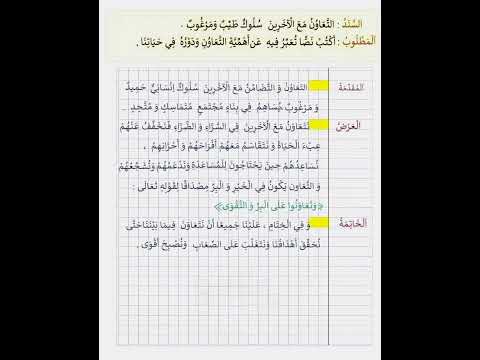 السَّنَدُ : التَّعَاوُنُ مَعَ الْآخَرِينَ سُلُوكٌ طَيِّبٌ وَمَرْغُوبٌ .
اَلْمَطْلُوبُ : اُكْتُبْ نَصًّا تُعَبِّرُ فِيهِ عَنْ أَهَمِّيَّةِ التَّعَاوُنِ وَدَوْرُهُ فِي حَيَاتِنَا .
اَلْمُقَدِّمَةُ التَّعَاوُنُ وَ التَّضَامُنُ مَعَ الْآخَرِينَ سُلُوكٌ إِنْسَانِيٌّ حَمِيدٌ
وَ مَرْغُوبٌ يُسَاهِمُ فِي بِنَاءِ مُجْتَمَعٍ مُتَمَاسِكٍ وَ مُتَّحِدٍ
الْعَرْضُ نَتَعَاوَنُ مَعَ الْآخَرِينَ فِي السَّرَّاءِ وَ الضَّرَّاءِ فَنُخَفِّفُ عَنْهُمْ
عِبْءَ الْحَيَاةِ وَ نَتَقَاسَمُ مَعَهُمْ أَفْرَاحَهُمْ وَ أَحْزَانَهُمْ .
نُسَاعِدُهُمْ حِينَ يَحْتَاجُونَ لِلْمُسَاعَدَةِ وَنَدْعَمُهُمْ وَنُشَجِّعُهُمْ
وَ التَّعَاوُن يَكُونُ فِي الْخَيْرِ وَ الْبِرِّ مِصْدَاقًا لِقَوْلِهِ تَعَالَى :
﴿وَتَعَاوَنُوا عَلَى الْبِرِّ وَ التَّقْوَى﴾
اَلْخَاتِمَةُ وَ فِي الْخِتَامِ ، عَلَيْنَا جَمِيعًا أَنْ نَتَعَاوَنَ فِيمَا بَيْنَنَا حَتَّى
نُحَقِّقَ أَهْدَافَنَا وَنَتَغَلَّبَ عَلَى الصِّعَابِ وَنُصْبِحَ أَقْوَى .